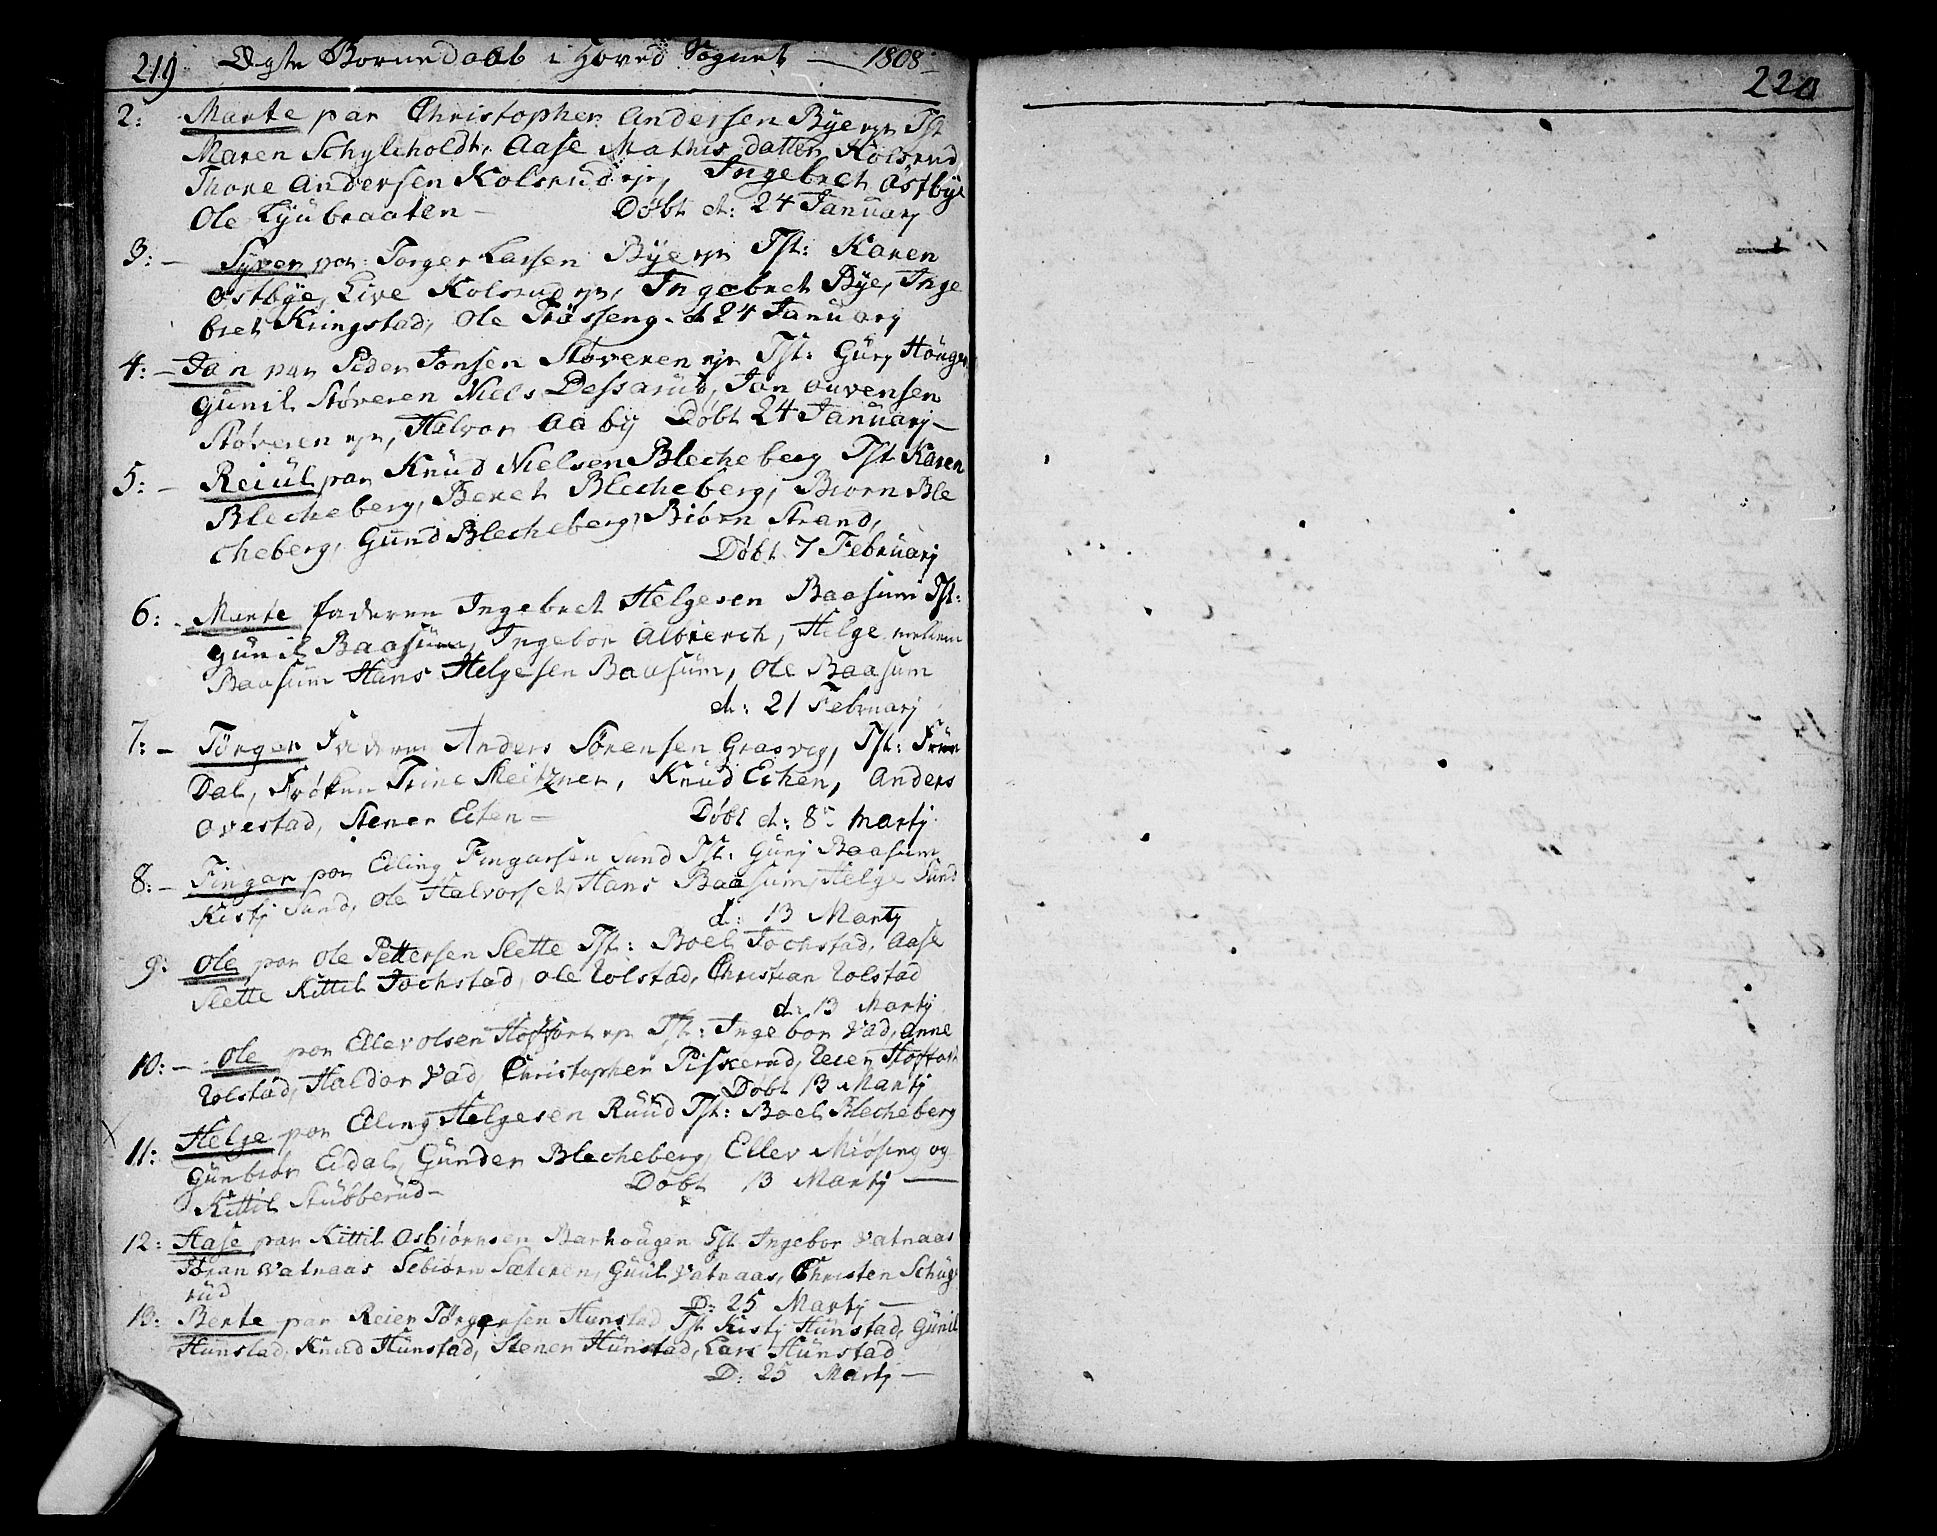 219 Ægte Børnedaab i Hoved Sognet — 1808
2: Marte par Christopher Andersen Bye ejr Tst
Maren Schylcholdt, Aase Mathis datter Kolsrud
Thore Andersen Kolsrud ejr, Ingebret Østbye
Ole Lyubraaten — Døbt d: 24 Januarj
3: — Syver par: Torger Larsen Bye ejr Tst: Karen
Østbye, Live Kolsrud ejr, Ingebret Bye, Inge
bret Kringstad, Ole Trøsseng. d 24 Januarj
4: — Jan par Peder Jonsen Støveren ejr Tst: Gurj Houge
Gunil Støveren Niels Dessarud, Jon
Støveren ejr, Halvor Aaby Døbt 24 Januarj —
5: — Reiul par Knud Nielsen Blecheberg Tst Karen
Blecheberg, Beret Blecheberg, Biørn Ble
cheberg, Gund Blecheberg, Biørn Strand,
Døbt 7 Februarj
6: Marte Faderen Ingebret Helgesen Baasum Tst:
Gunil Baasum, Ingebor Albierch, Helge mellem
Baasum Hans Helgesen Baasum, Ole Baasum
d: 21 Februarj
7: — Tørger Faderen Anders Sørensen Grasveg, Tst: Frue
Dal, Frøken Trine Meitzner, Knud Echen, Anders
Ovestad, Stener Eken — Døbt d: 8 Martj
8: — Fingar par Elling Fingarsen Sund Tst: Gurj Baasum
Kistj Sund, Ole Halvorset Hans Baasum, Helge Sund
d: 13 Martj
9: Ole par Ole Pettersen Slette Tst: Boel Jochstad, Aase
Slette Kittil Jochstad, Ole Tolstad, Christian Tolstad
d: 13 Martj
10: — Ole par Ellev Olsen Hoffart ejr Tst: Ingebor Vad, Anne
Tolstad, Haldor Vad, Christopher Piskerud, Reier Hoffart
Døbt 13 Martj
11: Helge par Elling Helgesen Ruud Tst: Boel Blecheberg
Gunbiør Eidal, Gunder Blecheberg, Ellev Miøsing og
Kittil Stubberud — Døbt 13 Martj —
12: Aase par Kittil Osbiørnsen Barhougen Tst Ingebor Vatnaas
Vatnaas Sebiørn Sæteren, Guul Vatnaas, Christen Schug
rud D: 25 Martj —
13: Berte par Reier Tørgersen Hunstad Tst Kistj Hunstad, Gunil
Hunstad, Knud Hunstad, Stener Hunstad, Lars Hunstad
D: 25 Martj —
220